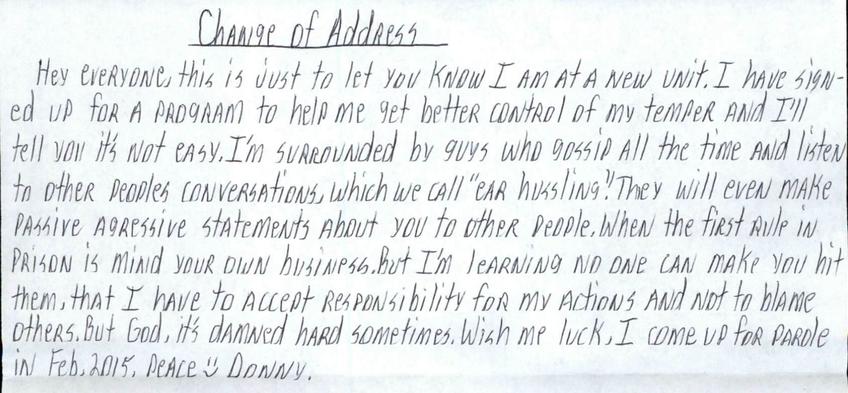 Change of Address
Hey everyone, this is just to let you know I am at a new unit. I have sign-
ed up for a program to help me get better control of my temper and I'll
tell you it's not easy. I'm surrounded by guys who gossip all the time and listen
to other peoples conversations, which we call "ear hussling." They will even make
passive agressive statements about you to other people. When the first rule in
prison is mind your own business. But I'm learning no one can make you hit
them, that I have to accept responsibility for my actions and not to blame
others. But God, it's damned hard sometimes. Wish me luck, I come up for parole
in Feb, 2015. Peace :) Donny.